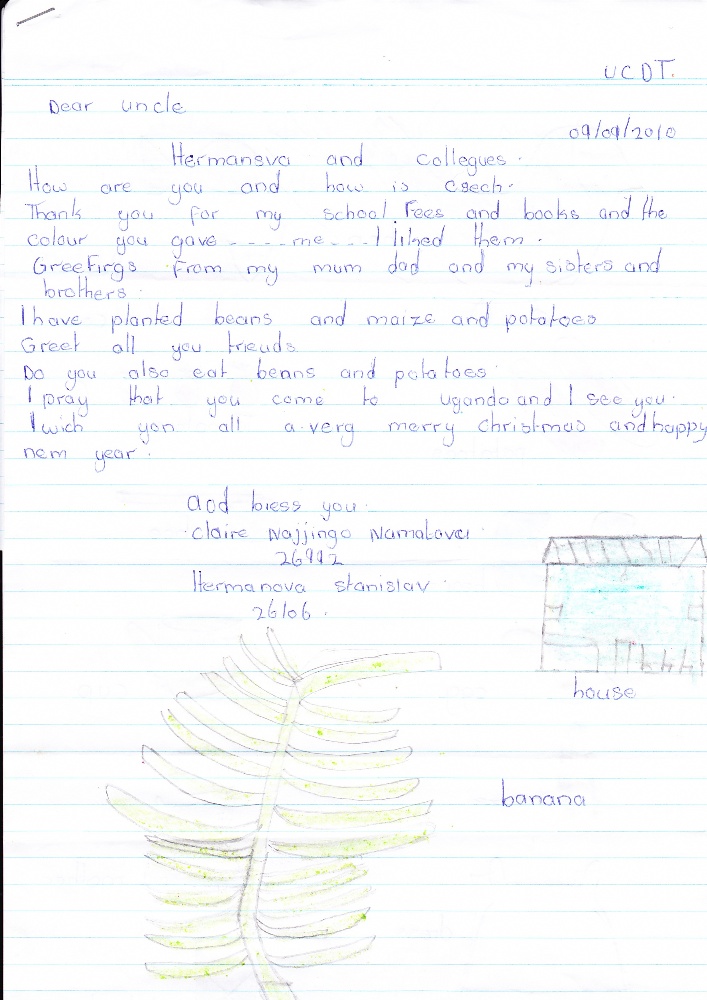 UCDT.
Dear uncle
09/09/2010
Hermansva and collegues.
How are you and how is csech.
Thank you for my school Fees and books and the
colour you gave ---- me --- I liked them.
Greetings from my mum dad and my sisters and
brothers.
I have planted beans and maize and potatoes
Greet all you friends
Do you also eat beans and potatoes
I pray that you come to uganda and I see you.
I wich you all a verg merry christmas and happy
nem year.
God bless you.
claire Najjingo Namatovu
26912
Hermanova stanislav
26106.
house
banana